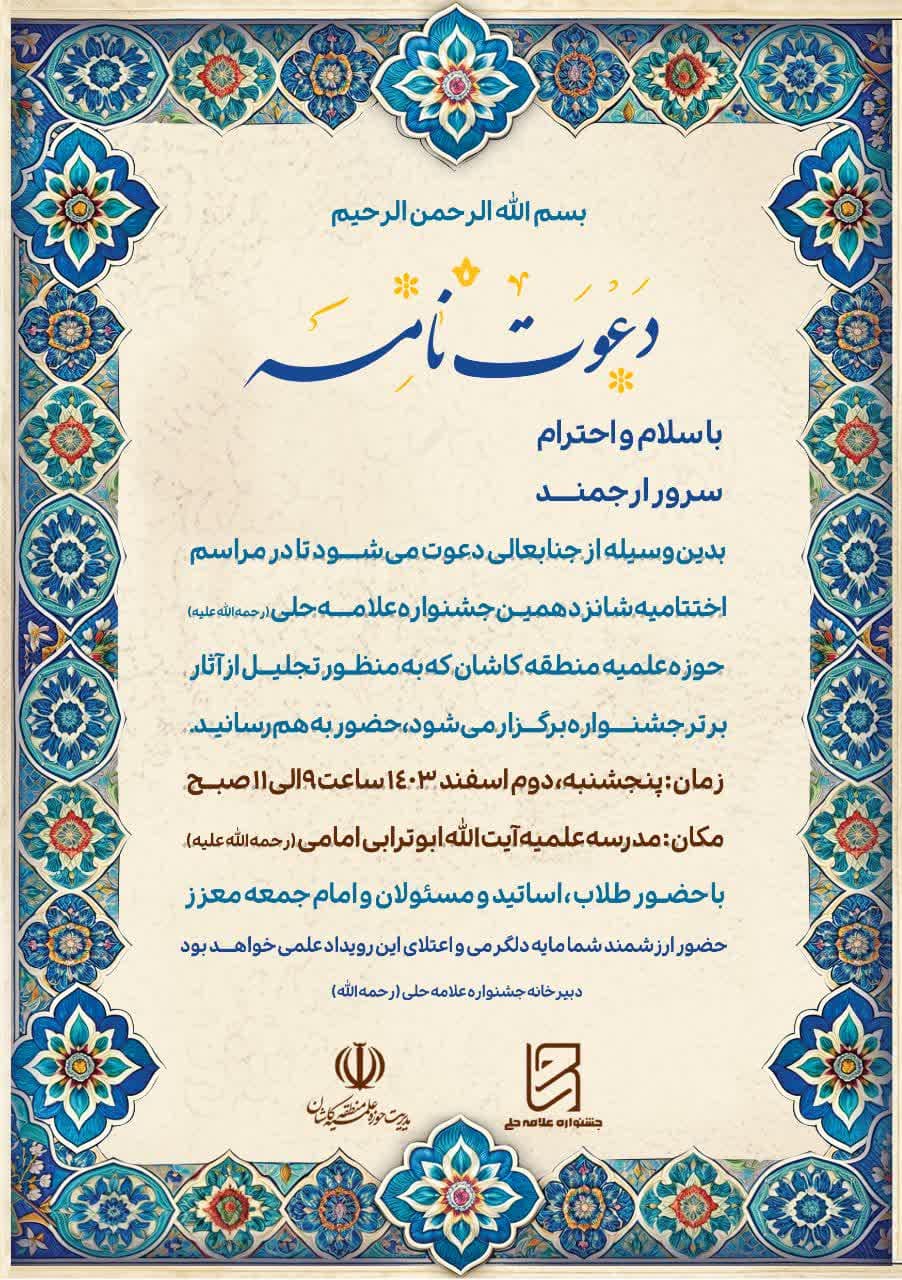 بسم الله الرحمن الرحیم
دعوت نامه
با سلام و احترام
سرور ارجمند
بدین وسیله از جنابعالی دعوت می شود تا در مراسم
اختتامیه شانزدهمین جشنواره علامه حلی (رحمه الله علیه)
حوزه علمیه منطقه کاشان که به منظور تجلیل از آثار
برتر جشنواره برگزار می شود، حضور به هم رسانید.
زمان: پنجشنبه، دوم اسفند ۱۴۰۳ ساعت ۹ الی ۱۱ صبح
مکان: مدرسه علمیه آیت الله ابوترابی امامی (رحمه الله علیه)
با حضور طلاب، اساتید و مسئولان و امام جمعه معزز
حضور ارزشمند شما مایه دلگرمی و اعتلای این رویداد علمی خواهد بود
دبیرخانه جشنواره علامه حلی (رحمه الله)
جشنواره علامه حلی
مدیریت حوزه علمیه منطقه کاشان